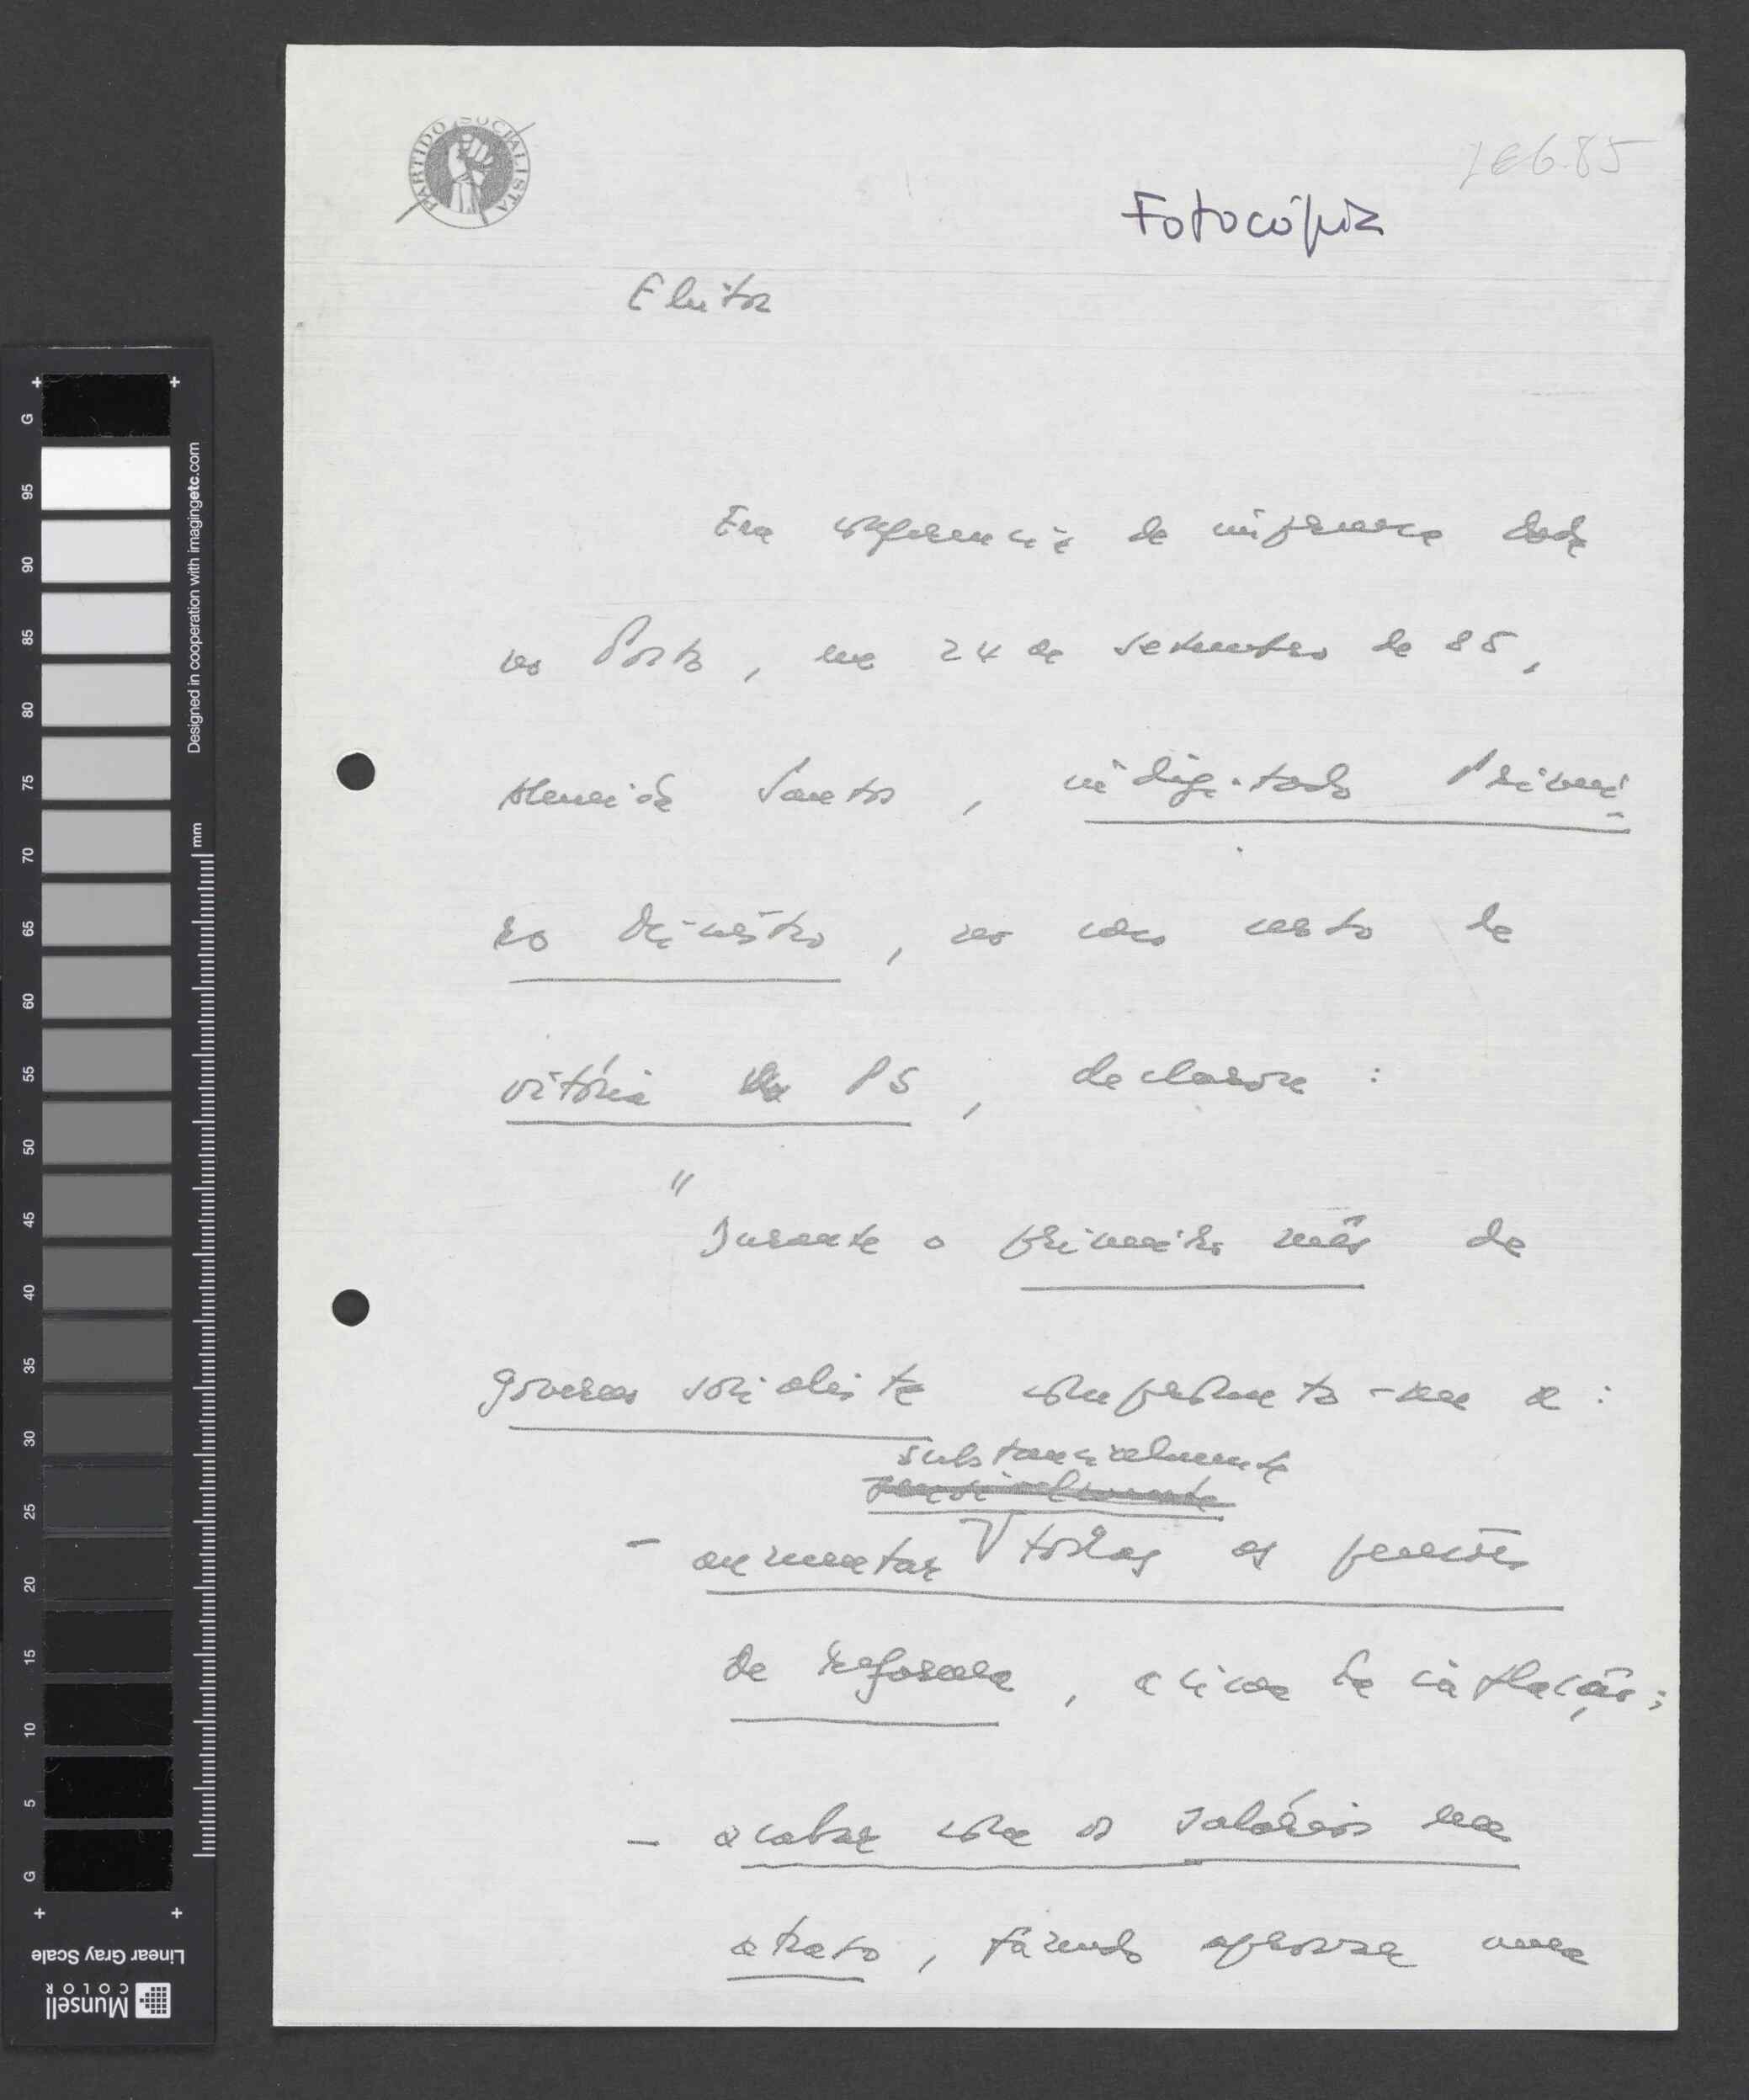 PARTIDO SOCIALISTA
6.85
Fotocópia
Eleitor
Em conferência de imprensa dada
no Porto, em 24 de setembro de 85,
Almeida Santos, indigitado Primei-
ro Ministro, no caso de
vitória do PS, declarou:
"
Durante o primeiro mês de
governo socialista comprometo-me a:
substancialmente
- aumentar todas as pensões
de reforma, acima da inflação;
- acabar com os salários em
atraso, fazendo aprovar uma
G
95
90
85
80
75
70
65
60
55
50
45
40
35
30
25
20
15
10
5
G
Designed in cooperation with imagingetc.com
mm
Linear Gray Scale
Munsell
COLOR